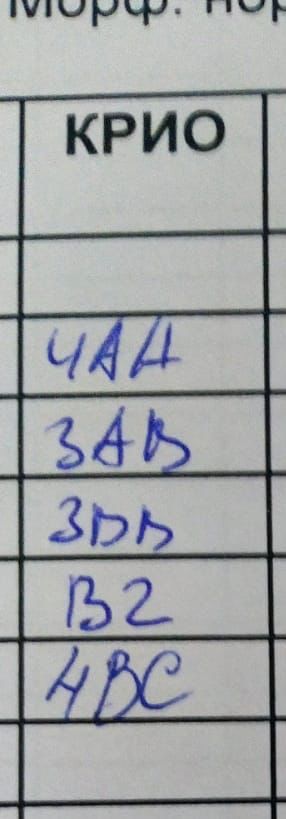 Морф. нор
КРИО
4AA
3AB
3BB
B2
4BC